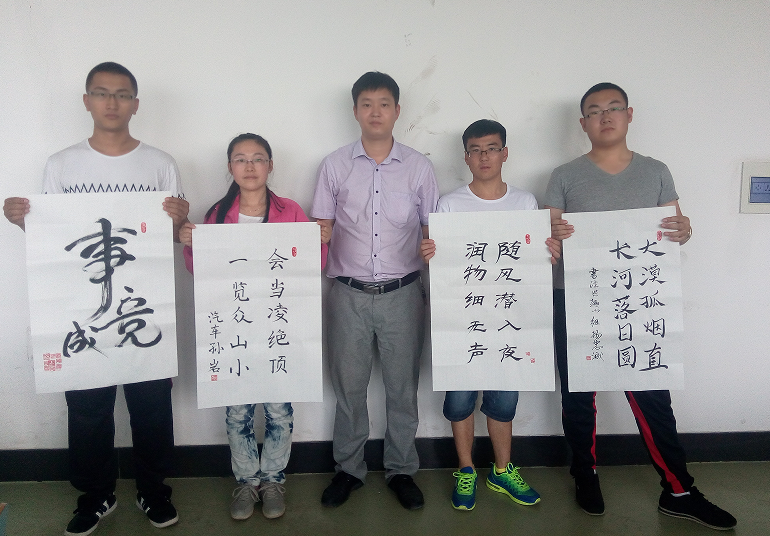 事竟成
会当凌绝顶
一览众山小
汽车孙岩
随风潜入夜
润物细无声
大漠孤烟直
长河落日圆
书法兴趣小组